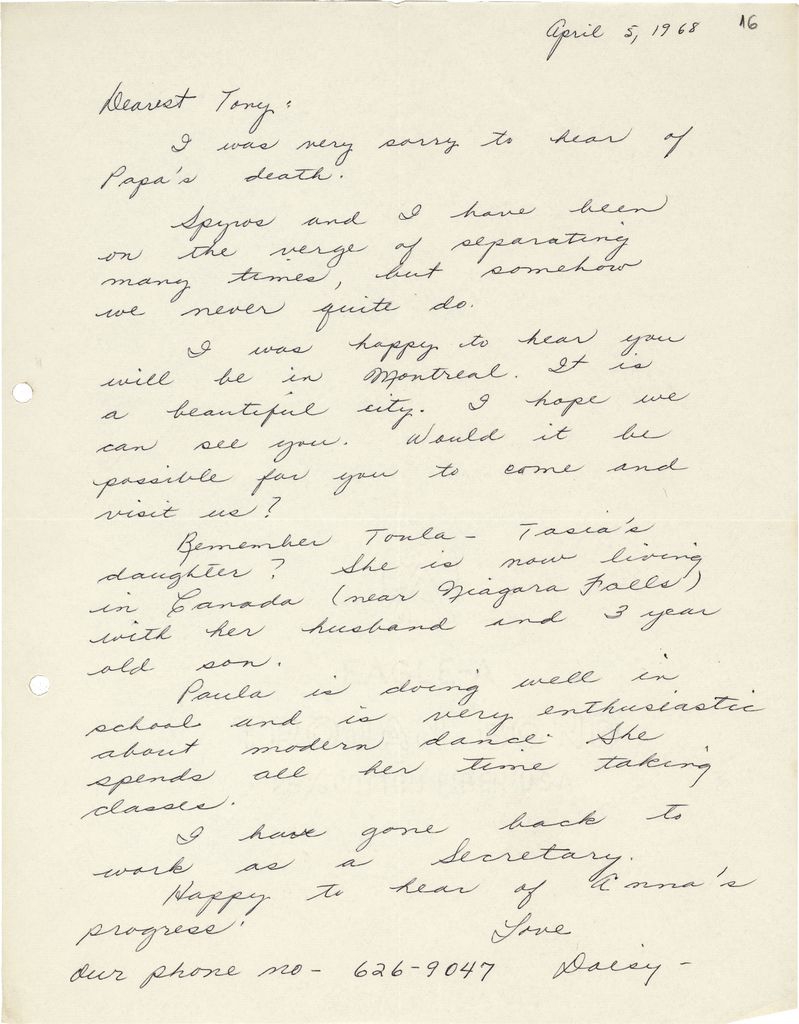 April 5, 1968 16
Dearest Tony:
I was very sorry to hear of
Papa's death.
Spyros and I have been
on the verge of separating
many times, but somehow
we never quite do.
I was happy to hear you
will be in Montreal. It is
a beautiful city. I hope we
can see you. Would it be
possible for you to come and
visit us?
Remember Toula - Tasia's
daughter? She is now living
in Canada (near Niagara Falls)
with her husband and 3 year
old son.
Paula is doing well in
school and is very enthusiastic
about modern dance. She
spends all her time taking
classes.
I have gone back to
work as a Secretary.
Happy to hear of Anna's
progress.
Love
Our phone no - 626-9047 Daisy -